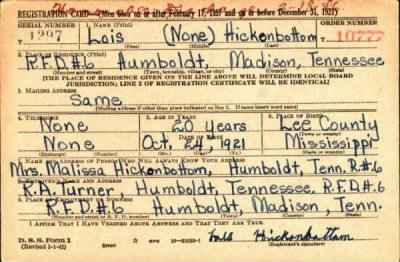 REGISTRATION CARD—(Men born on or after February 17, 1897 and on or before December 31, 1921)
SERIAL NUMBER 1. NAME (Print) ORDER NUMBER
1297 Lois (None) Hickonbottom 10777
(First) (Middle) (Last)
2. PLACE OF RESIDENCE (Print)
R.F.D.#6 Humboldt, Madison, Tennessee
(Number and street) (Town, township, village, or city) (County) (State)
[THE PLACE OF RESIDENCE GIVEN ON THE LINE ABOVE WILL DETERMINE LOCAL BOARD
JURISDICTION; LINE 2 OF REGISTRATION CERTIFICATE WILL BE IDENTICAL]
3. MAILING ADDRESS
Same
[Mailing address if other than place indicated on line 2. If same insert word same]
4. TELEPHONE 5. AGE IN YEARS 6. PLACE OF BIRTH
None 20 years Lee County
DATE OF BIRTH (Town or county)
None Oct, 24, 1921 Mississippi
7. NAME AND ADDRESS OF PERSON WHO WILL ALWAYS KNOW YOUR ADDRESS
Mrs. Malissa Hickonbottom, Humboldt, Tenn. R#6
8. EMPLOYER'S NAME AND ADDRESS
R.A. Turner, Humboldt, Tennessee, R.F.D.#6
9. PLACE OF EMPLOYMENT OR BUSINESS
R.F.D.#6 Humboldt, Madison, Tenn.
(Number and street or R. F. D. number) (Town) (County) (State)
I AFFIRM THAT I HAVE VERIFIED ABOVE ANSWERS AND THAT THEY ARE TRUE.
D. S. S. Form 1
(Revised 1-1-42) GPO 16—21630-1 Lois Hickonbattam
(Registrant's signature)